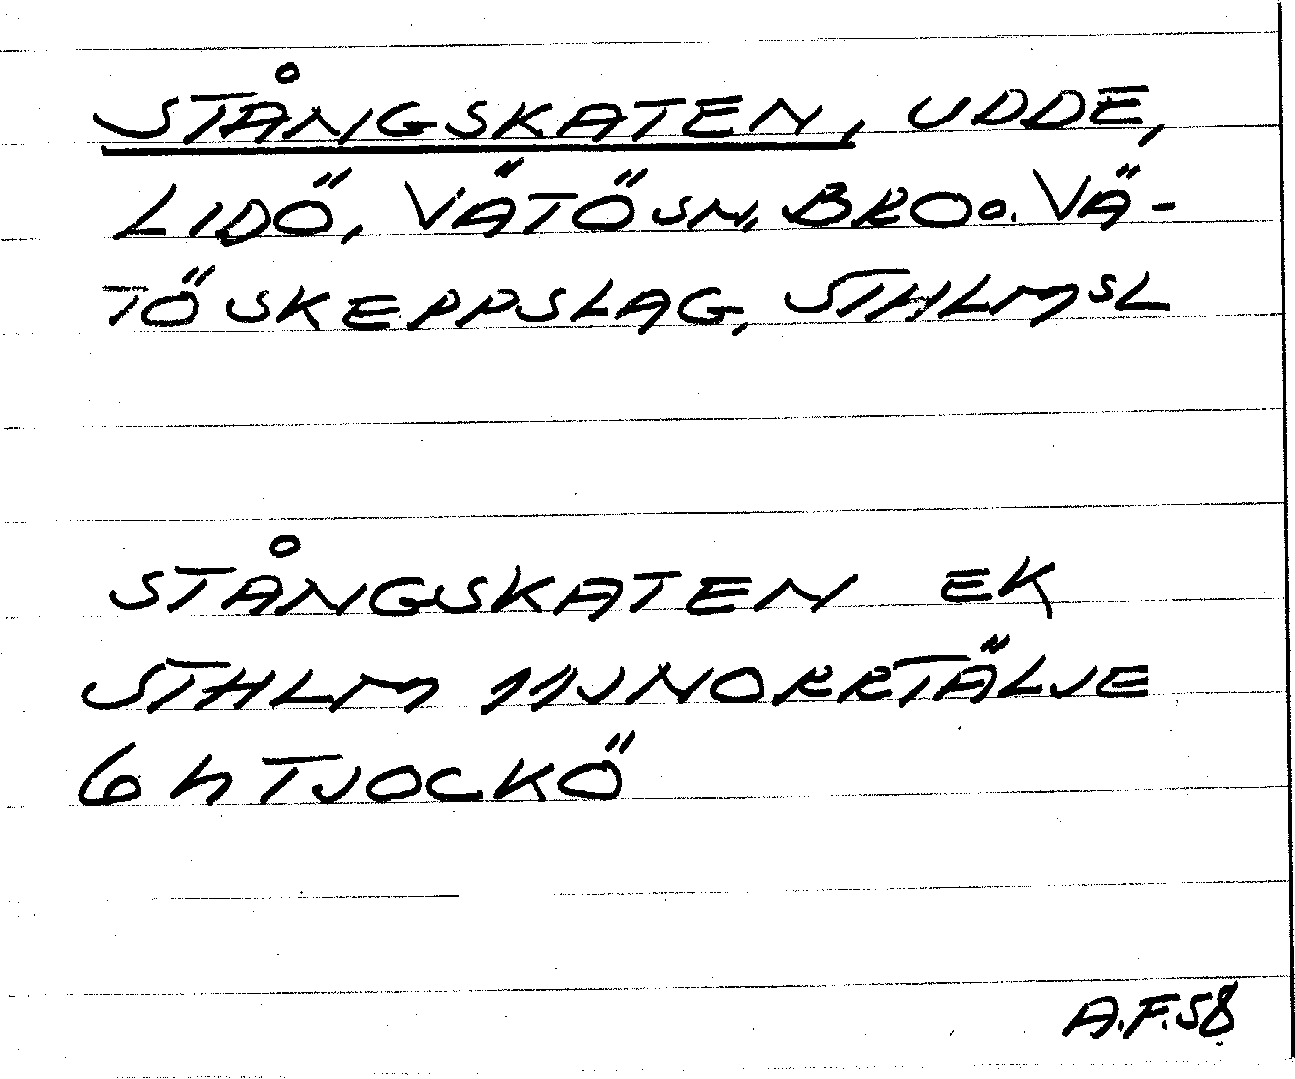 STÅNGSKATEN, UDDE,
LIDÖ, VÄTÖ SN, BRO o. VÄ-
TÖ SKEPPSLAG, STHLMSL
STÅNGSKATEN EK
STHLM 11J NORRTÄLJE
6 h TJOCKÖ
A.F.58